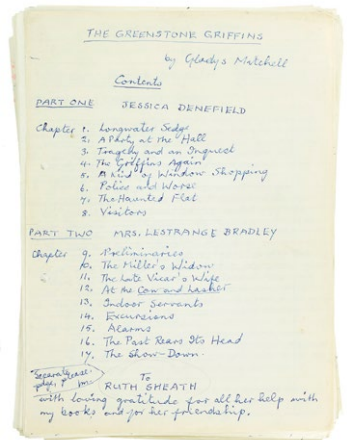 THE GREENSTONE GRIFFINS
by Gladys Mitchell
Contents
PART ONE JESSICA DENEFIELD
Chapter 1. Longwater Sedge
2. A Party at the Hall
3. Tragedy and an Inquest
4. The Griffins Again
5. A Kind of Window Shopping
6. Police and Worse
7. The Haunted Flat
8. Visitors
PART TWO MRS. LESTRANGE BRADLEY
Chapter 9. Preliminaries
10. The Miller's Widow
11. The Late Vicar's Wife
12. At the Cow and Lasher
13. Indoor Servants
14. Excursions
15. Alarms
16. The Past Rears Its Head
17. The Show-Down.
Separate
page,
To
RUTH SHEATH
with loving gratitude for all her help with
my books and for her friendship.